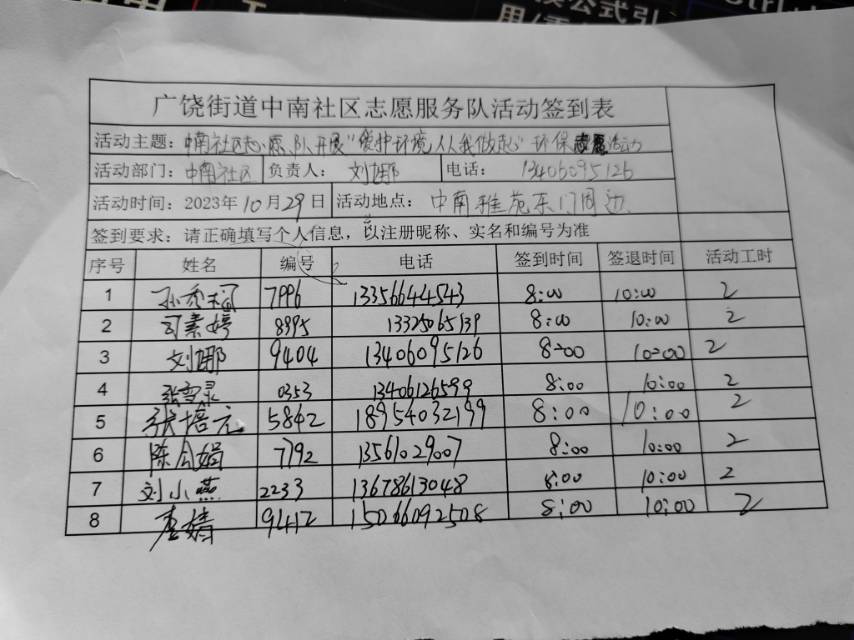 广饶街道中南社区志愿服务队活动签到表
活动主题：中南社区志愿队开展"爱护环境 从我做起"环保志愿活动
活动部门：中南社区 负责人：刘娜 电话：13406095126
活动时间：2023年10月29日 活动地点：中南雅苑东门周边
签到要求：请正确填写个人信息，以注册昵称、实名和编号为准
序号 姓名 编号 电话 签到时间 签退时间 活动工时
1 7996 13356644543 8:00 10:00 2
2 司素婷 8995 13325065139 8:00 10:00 2
3 刘娜 9404 13406095126 8:00 10:00 2
4 张雪 0353 13406126599 8:00 10:00 2
5 张培元 5842 18954032199 8:00 10:00 2
6 陈娟 7792 13561029007 8:00 10:00 2
7 刘小燕 2233 13678613048 8:00 10:00 2
8 李婧 9412 15066092508 8:00 10:00 2